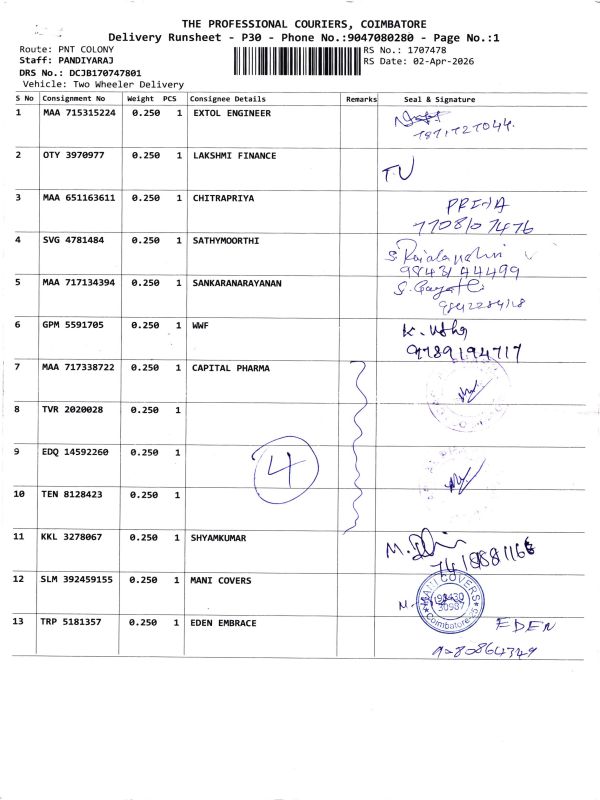 THE PROFESSIONAL COURIERS, COIMBATORE
Delivery Runsheet - P30 - Phone No.:9047080280 - Page No.:1
Route: PNT COLONY
RS No.: 1707478
Staff: PANDIYARAJ
RS Date: 02-Apr-2026
DRS No.: DCJB170747801
Vehicle: Two Wheeler Delivery
S No Consignment No Weight PCS Consignee Details Remarks Seal & Signature
1 MAA 715315224 0.250 1 EXTOL ENGINEER
2 OTY 3970977 0.250 1 LAKSHMI FINANCE
TU
3 MAA 651163611 0.250 1 CHITRAPRIYA
PRIYA
7708107476
4 SVG 4781484 0.250 1 SATHYMOORTHI
9843144499
5 MAA 717134394 0.250 1 SANKARANARAYANAN
6 GPM 5591705 0.250 1 WWF
K. Usha
9789194717
7 MAA 717338722 0.250 1 CAPITAL PHARMA
8 TVR 2020028 0.250 1
9 EDQ 14592260 0.250 1
4
10 TEN 8128423 0.250 1
11 KKL 3278067 0.250 1 SHYAMKUMAR
12 SLM 392459155 0.250 1 MANI COVERS
MANI COVERS
Coimbatore
13 TRP 5181357 0.250 1 EDEN EMBRACE
EDEN